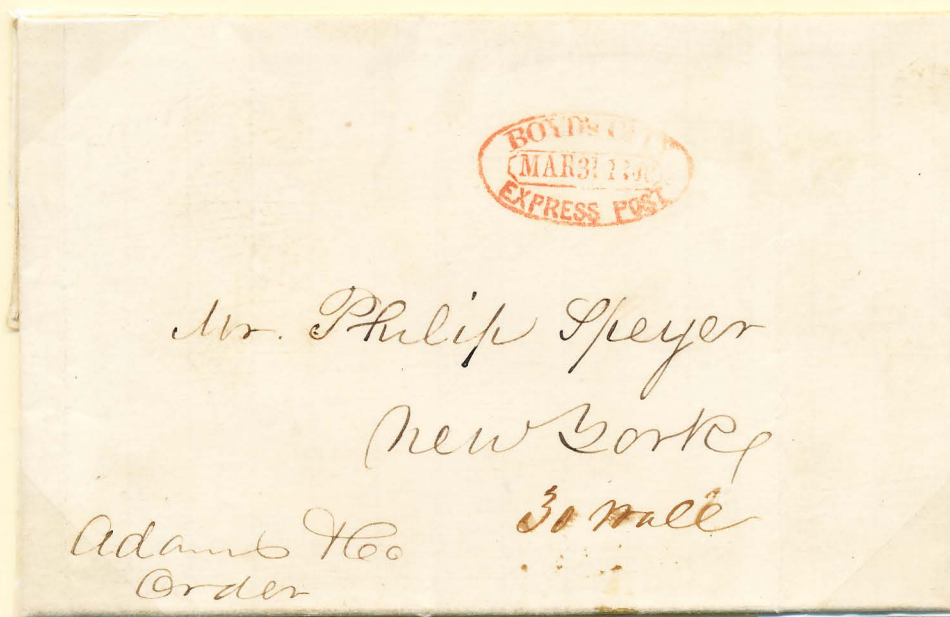 BOYD'S CITY
MAR 31
EXPRESS POST
Mr. Philip Speyer
New York
30 Wall
Adams & Co
Order